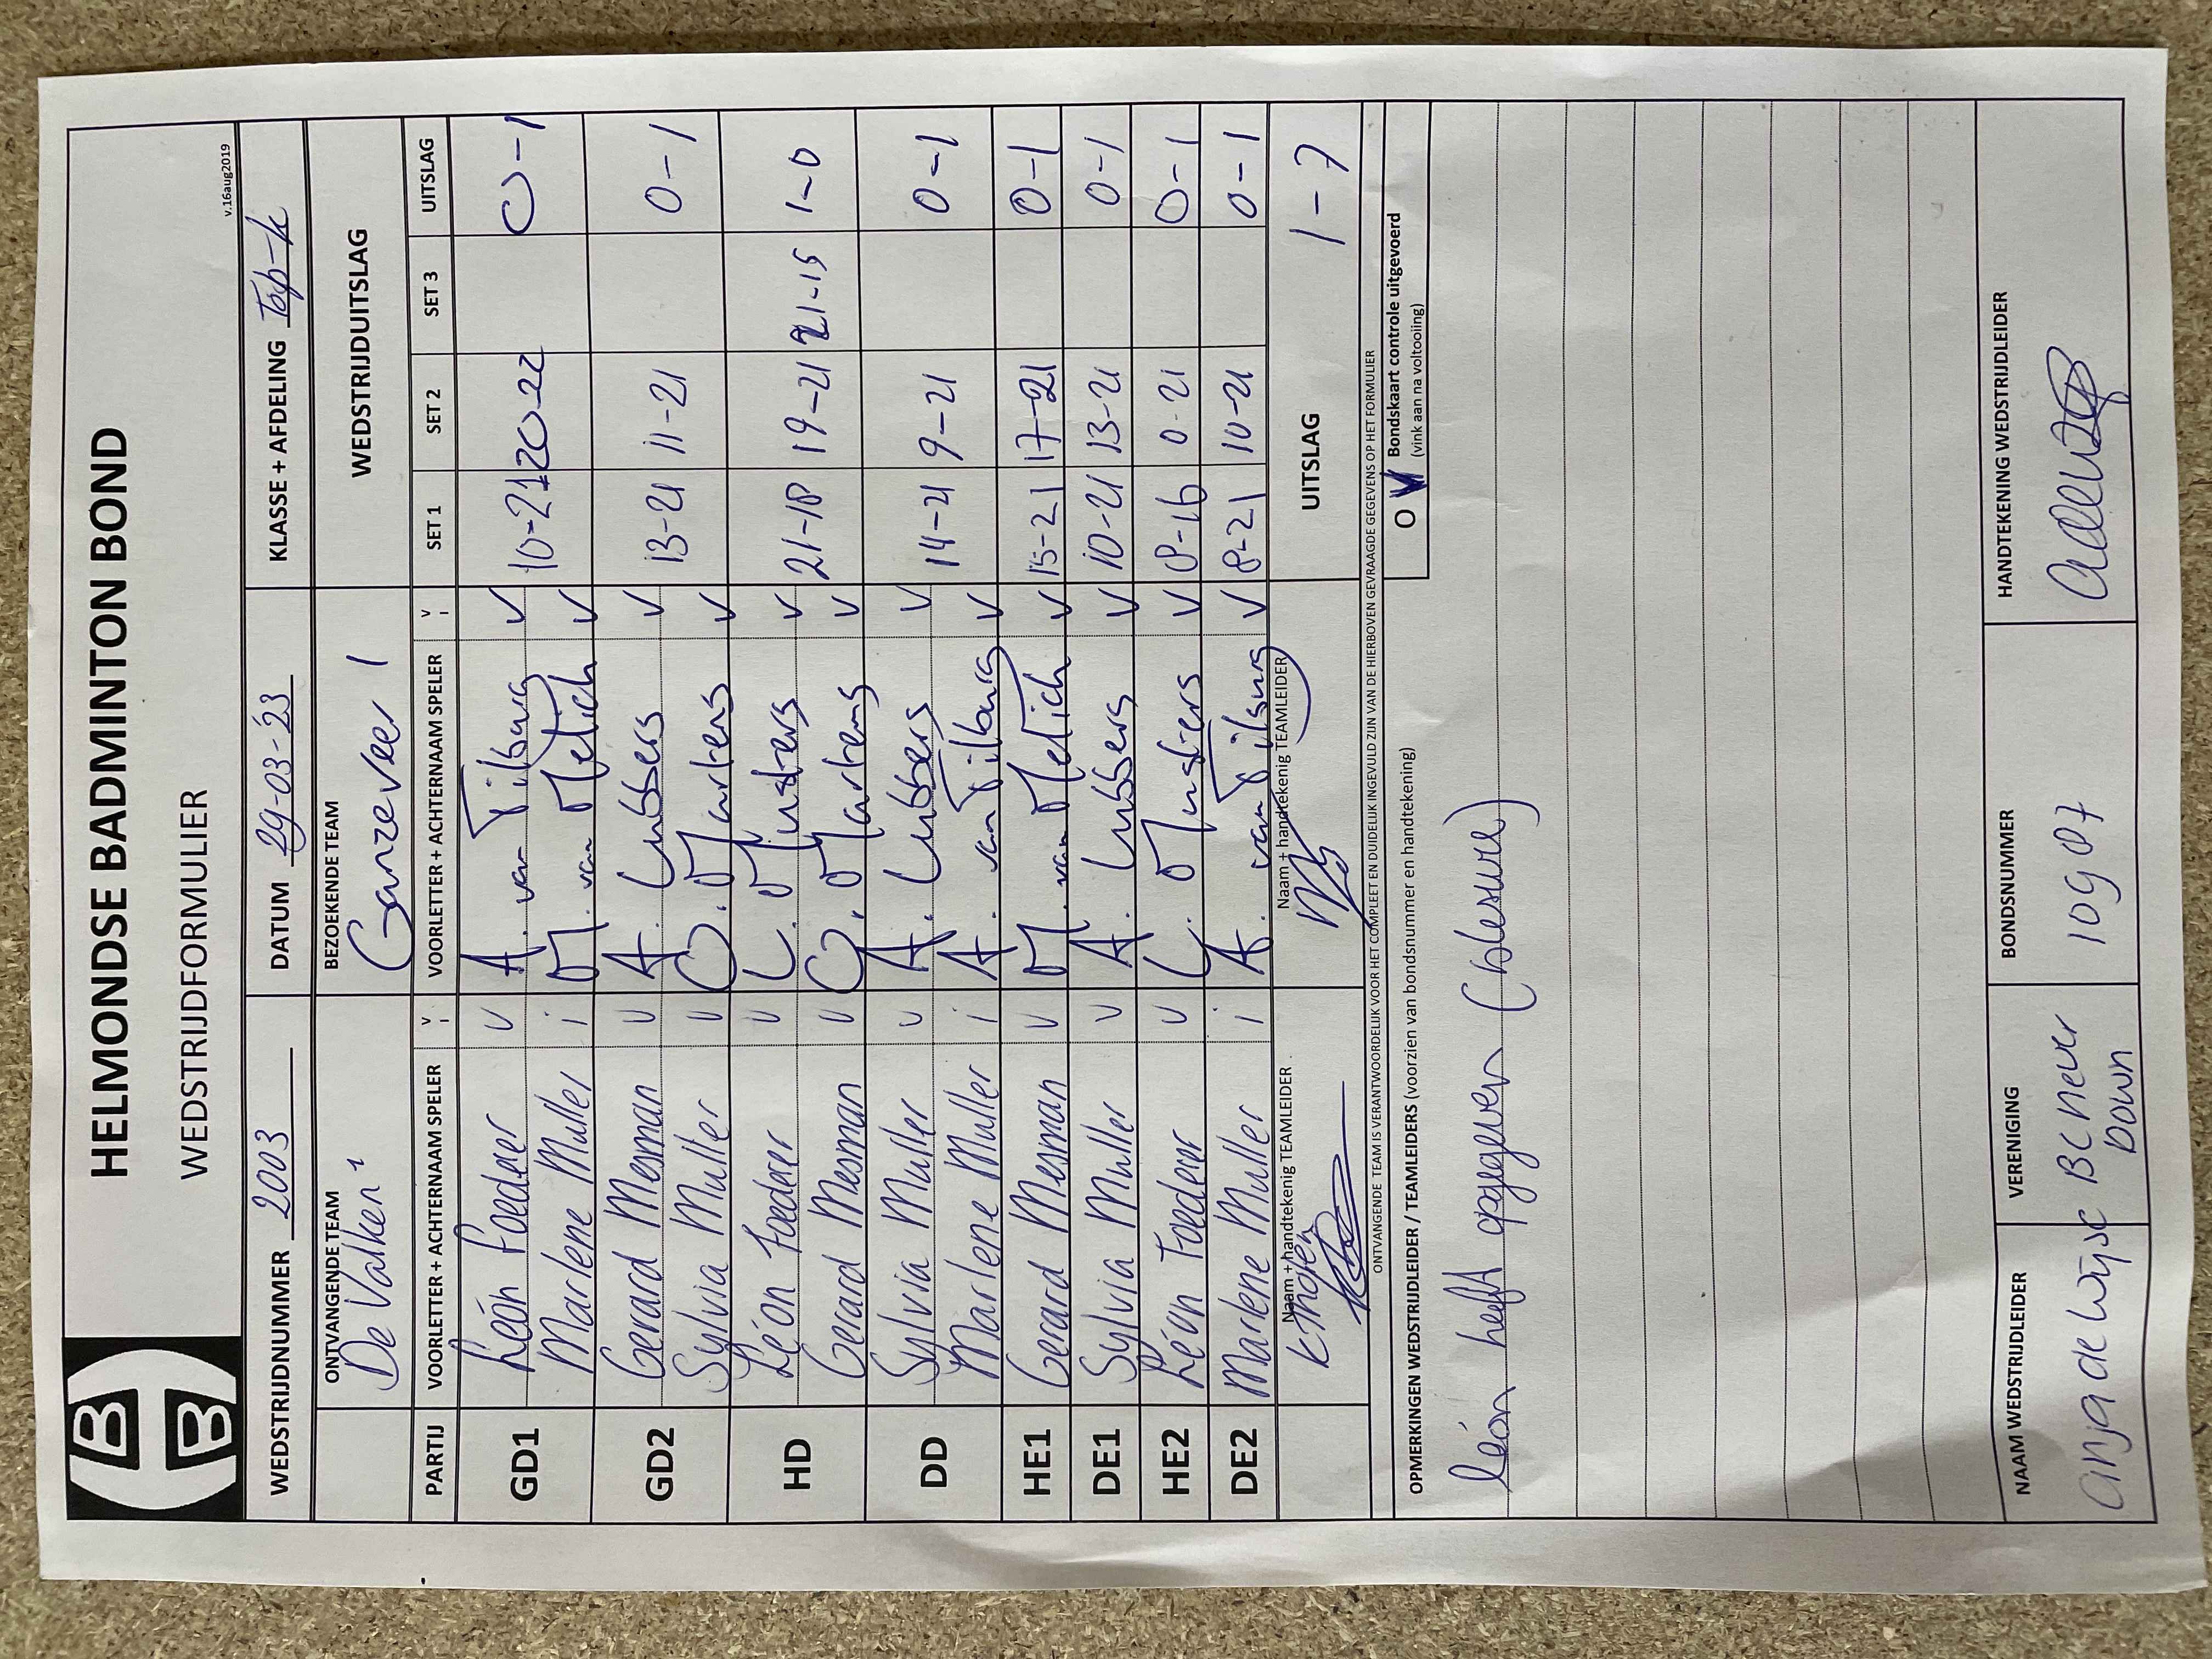 HBB
HELMONDSE BADMINTON BOND
WEDSTRIJDFORMULIER
v.16aug2019
WEDSTRIJDNUMMER 2003 DATUM 29-03-'23 KLASSE + AFDELING Top-k
ONTVANGENDE TEAM BEZOEKENDE TEAM WEDSTRIJDUITSLAG
De Valken 1 Ganzeveer 1
PARTIJ VOORLETTER + ACHTERNAAM SPELER v i VOORLETTER + ACHTERNAAM SPELER v i SET 1 SET 2 SET 3 UITSLAG
GD1 Léon Foederer v A. van Tilburg v 10-21 20-22 0-1
Marlene Muller i M. van Melich v
GD2 Gerard Mesman v A. Lubbers v 13-21 11-21 0-1
Sylvia Muller v G. Martens v
HD Léon Foederer v L. Musters v 21-18 19-21 21-15 1-0
Gerard Mesman v G. Martens v
DD Sylvia Muller v A. Lubbers v 14-21 9-21 0-1
Marlene Muller i A. van Tilburg v
HE1 Gerard Mesman v M. van Melich v 15-21 17-21 0-1
DE1 Sylvia Muller v A. Lubbers v 10-21 13-21 0-1
HE2 Léon Foederer v L. Musters v 8-16 0-21 0-1
DE2 Marlene Muller i A. van Tilburg v 8-21 10-21 0-1
Naam + handtekenig TEAMLEIDER Naam + handtekenig TEAMLEIDER UITSLAG 1-7
K. Thijssen
ONTVANGENDE TEAM IS VERANTWOORDELIJK VOOR HET COMPLEET EN DUIDELIJK INGEVULD ZIJN VAN DE HIERBOVEN GEVRAAGDE GEGEVENS OP HET FORMULIER
OPMERKINGEN WEDSTRIJDLEIDER / TEAMLEIDERS (voorzien van bondsnummer en handtekening)
O V Bondskaart controle uitgevoerd
(vink aan na voltooiing)
léon heeft opgegeven (blessure)
NAAM WEDSTRIJDLEIDER VERENIGING BONDSNUMMER HANDTEKENING WEDSTRIJDLEIDER
Anja de Wijse BC never Down 10907